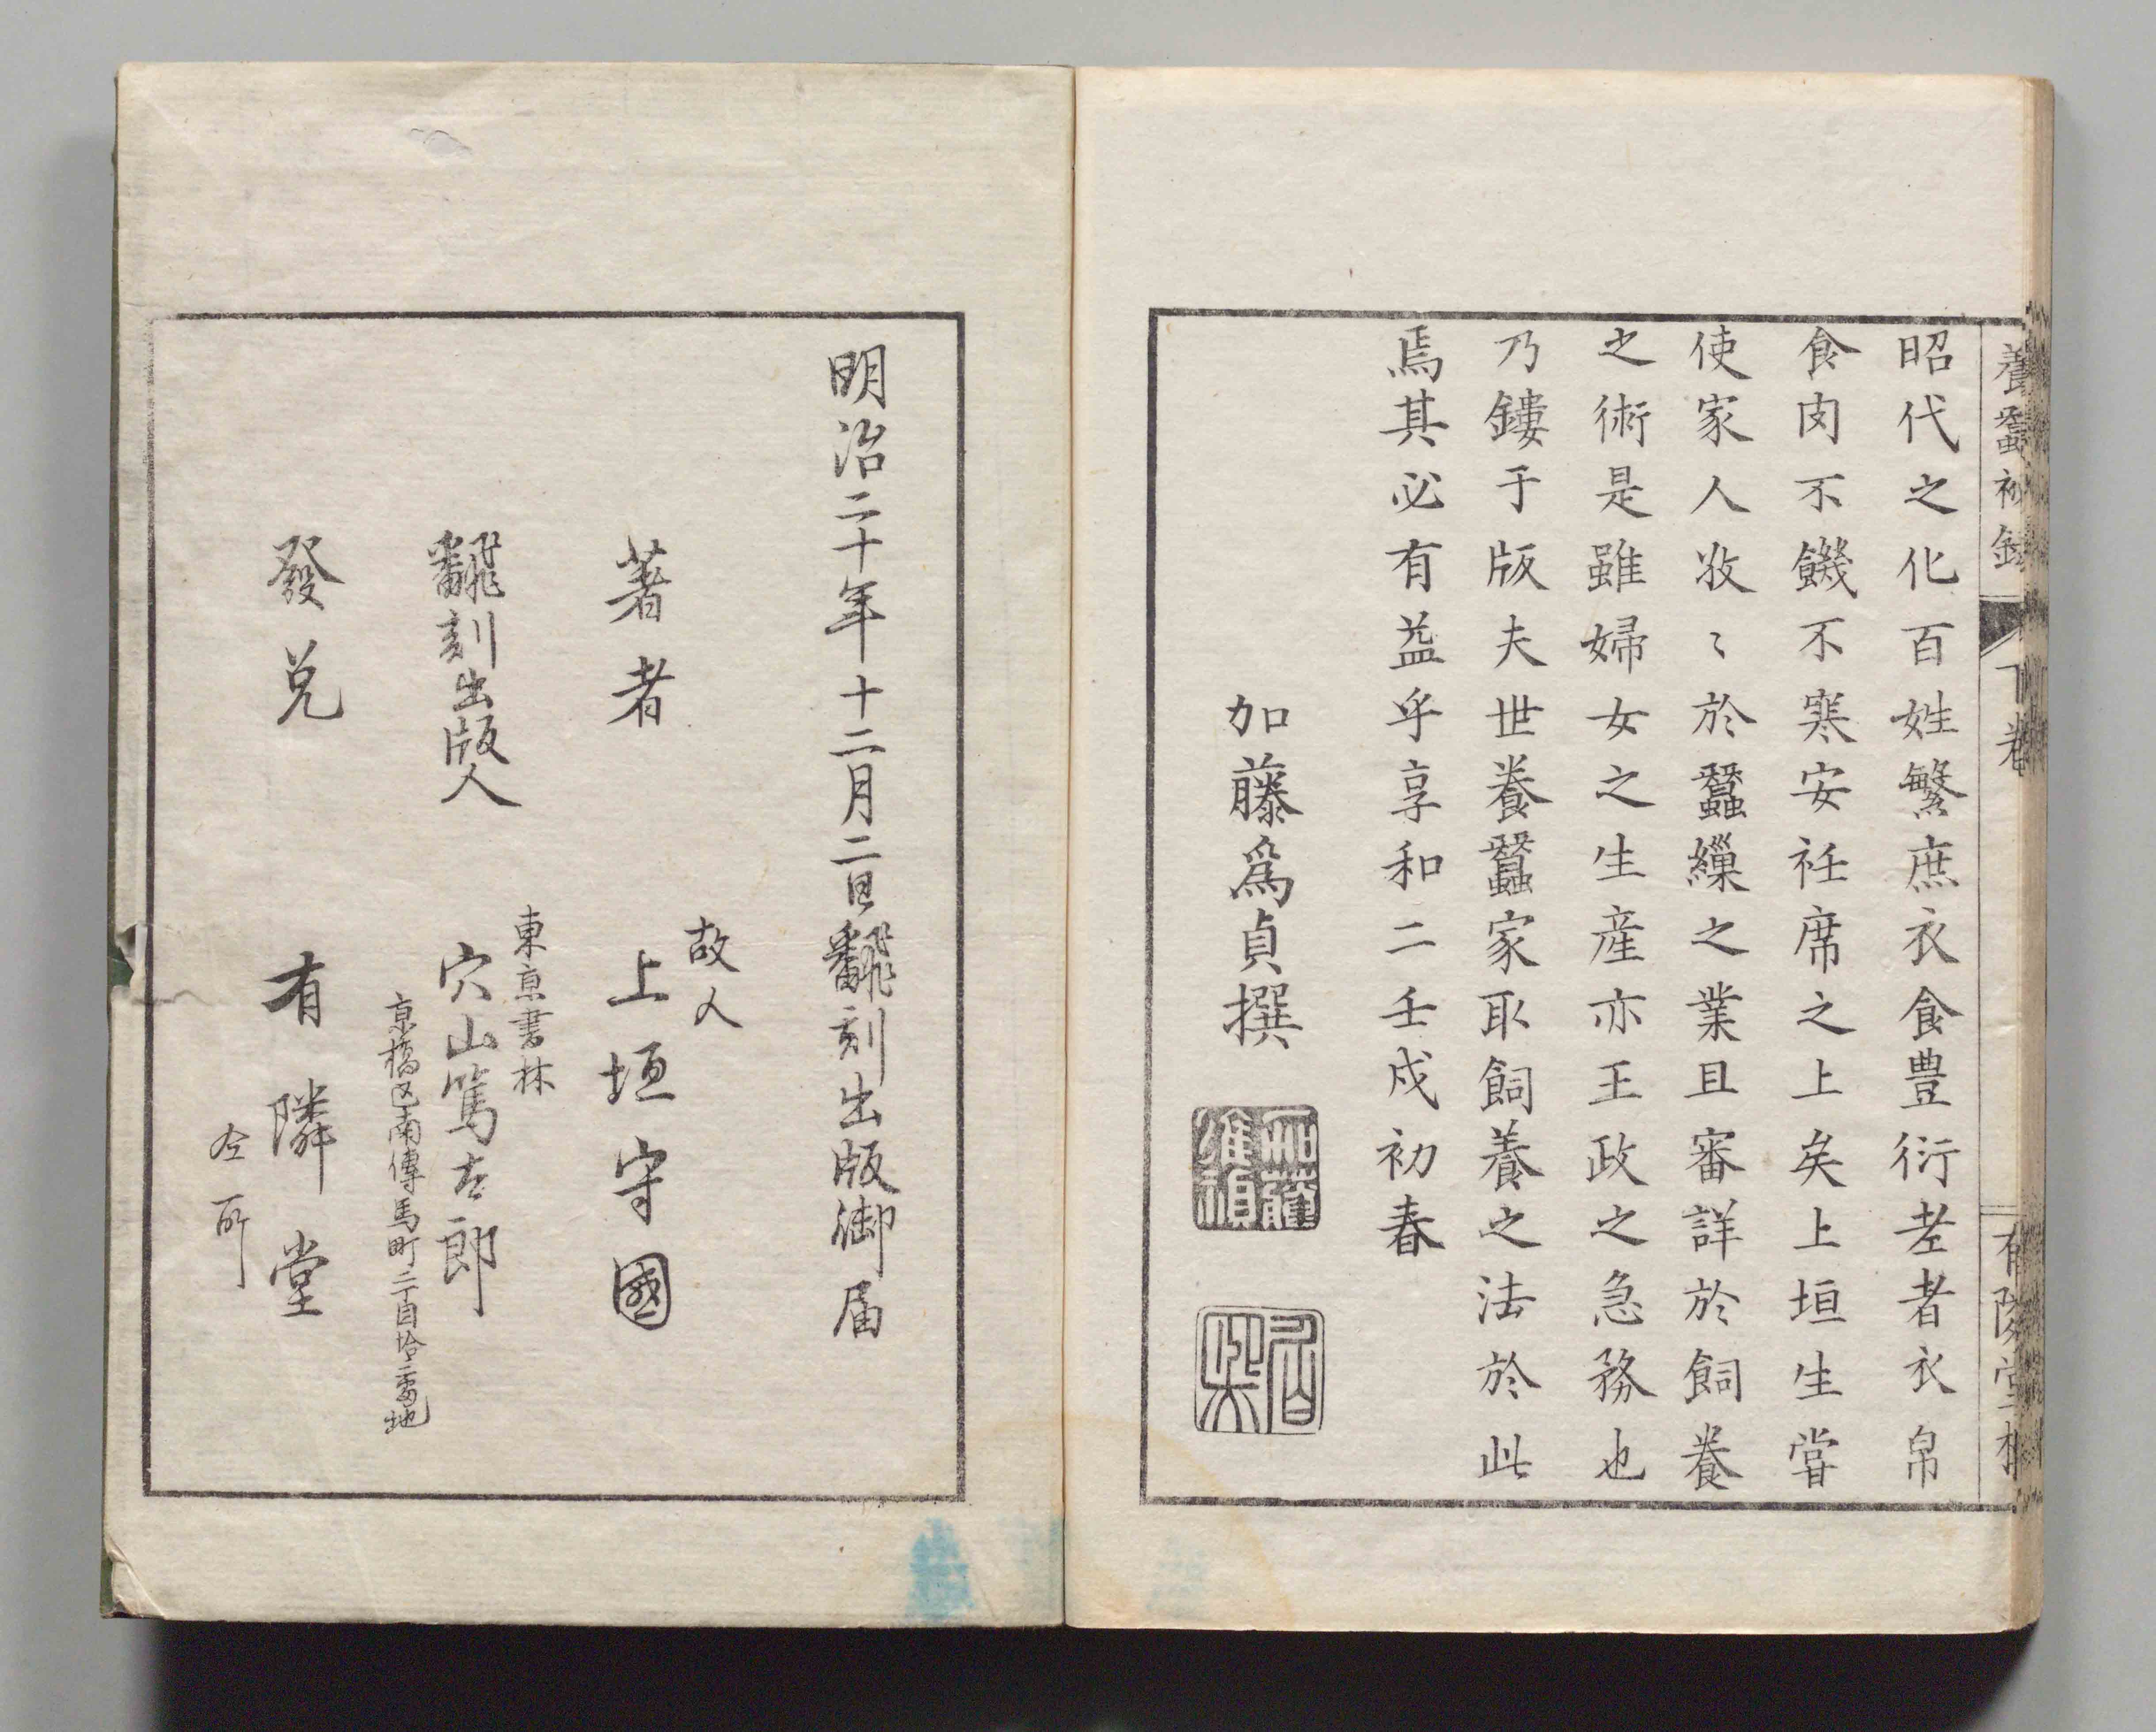 養蚕秘録
下巻
有隣堂梓
昭代之化百姓繁庶衣食豊衍老者衣帛
食肉不饑不寒安衽席之上矣上垣生甞
使家人孜〻於蠶繅之業且審詳於飼養
之術是雖婦女之生産亦王政之急務也
乃鏤于版夫世養蠶家取飼養之法於此
焉其必有益乎享和二壬戌初春
加藤爲貞撰
明治二十年十二月二日飜刻出版御届
著者
故人
上垣守國
飜刻出版人
東京書林
穴山篤太郎
京橋区南傳馬町二丁目拾三番地
發兌
有隣堂
仝所